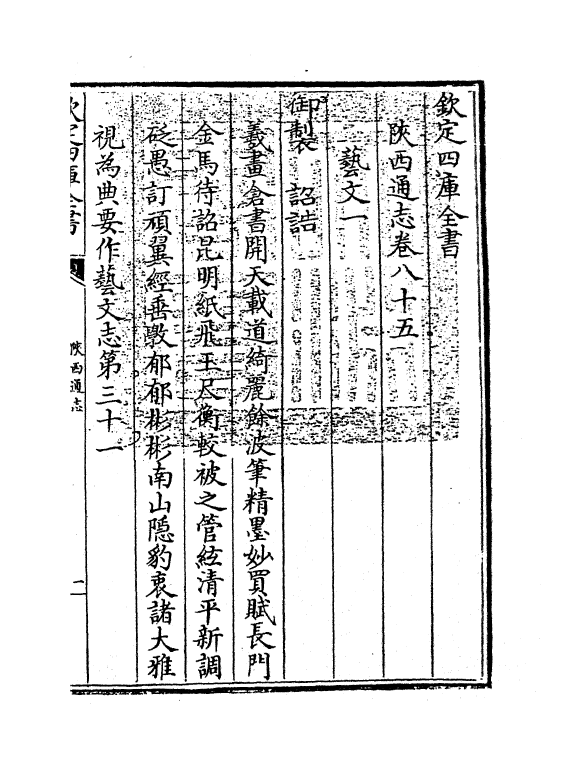 欽定四庫全書
陜西通志卷八十五
藝文一
御製 詔誥
羲畫倉書開天載道綺麗餘波筆精墨妙買賦長門
金馬待詔昆明紙飛玉尺衡較被之管絃清平新調
砭愚訂頑翼經垂斆郁郁彬彬南山隱豹衷諸大雅
視為典要作藝文志第三十一
欽定四庫全書
陜西通志